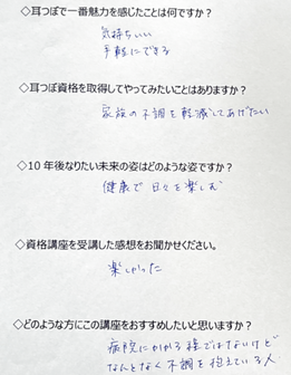 ◇耳つぼで一番魅力を感じたことは何ですか？
気持ちいい
手軽にできる
◇耳つぼ資格を取得してやってみたいことはありますか？
家族の不調を軽減してあげたい
◇10年後なりたい未来の姿はどのような姿ですか？
健康で日々を楽しむ
◇資格講座を受講した感想をお聞かせください。
楽しかった
◇どのような方にこの講座をおすすめしたいと思いますか？
病院にかかる程ではないけど
なんとなく不調を抱えている人